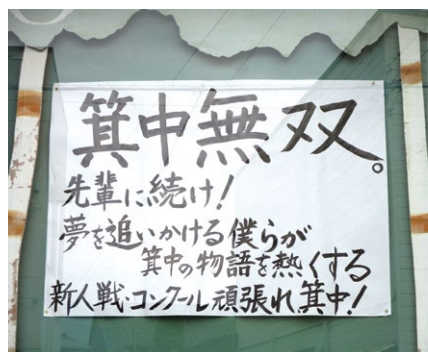 箕中無双。
先輩に続け!
夢を追いかける僕らが
箕中の物語を熱くする
新人戦・コンクール頑張れ箕中!